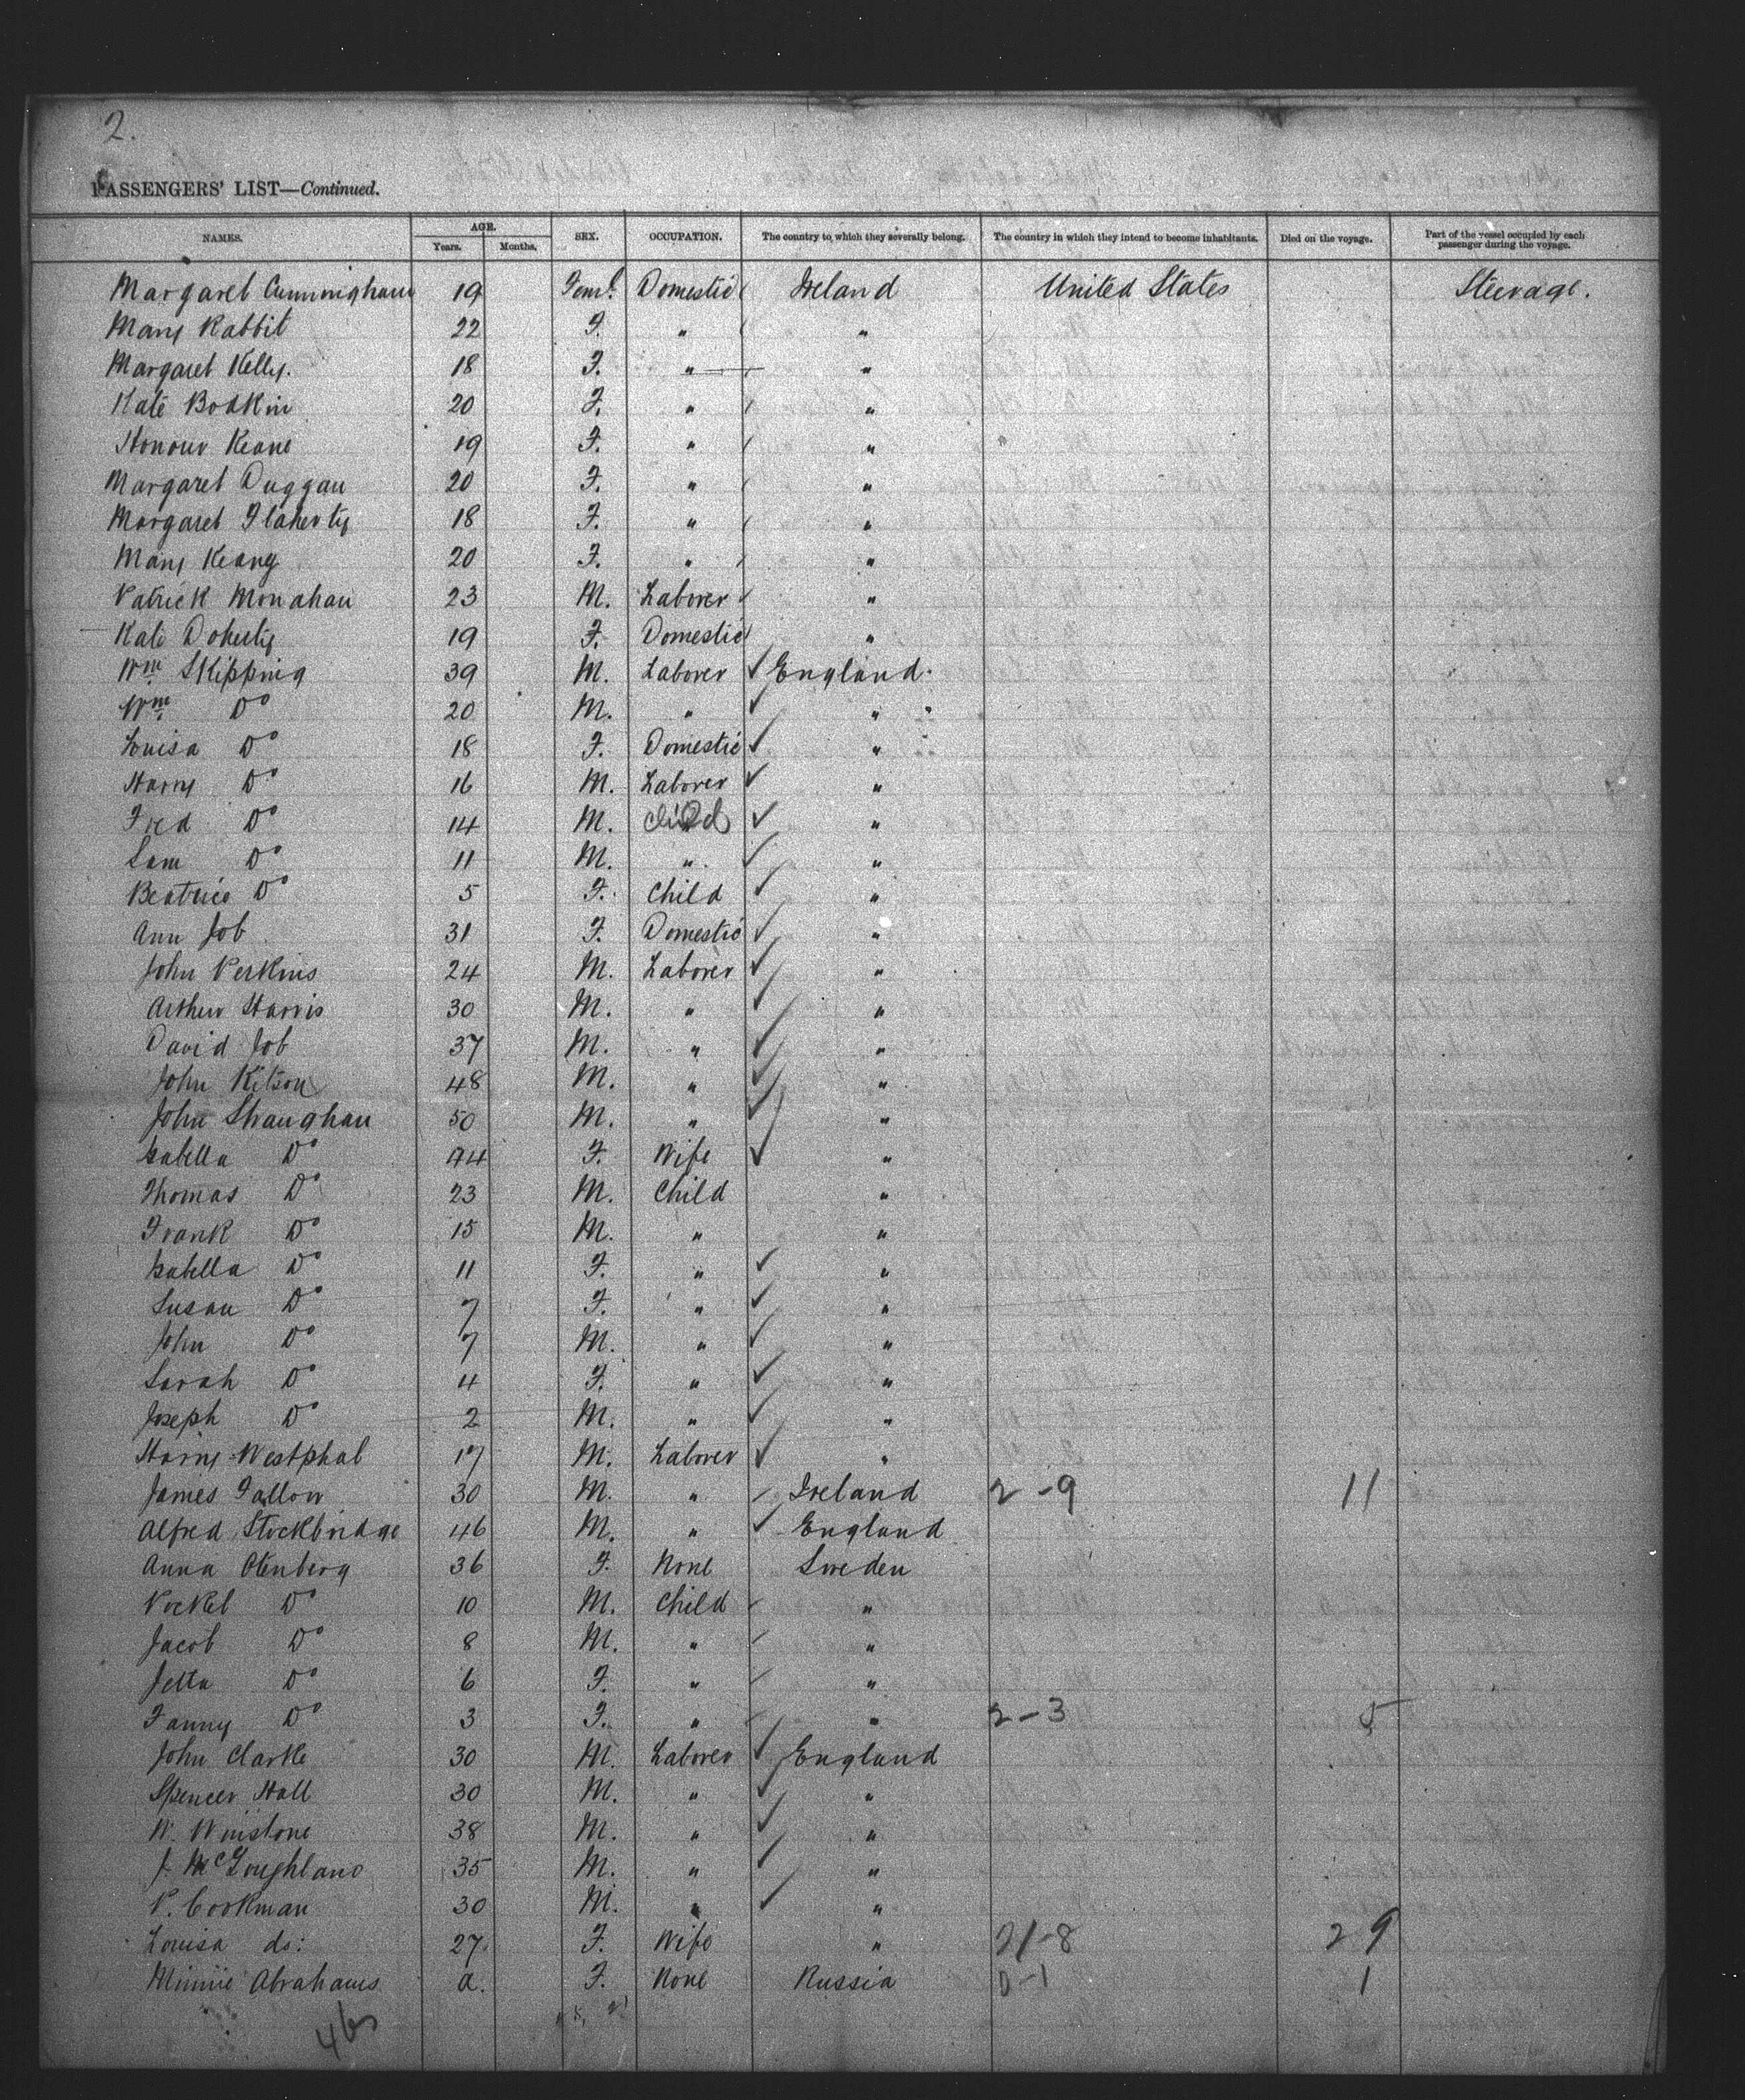 2.
PASSENGERS' LIST—Continued.
NAMES. AGE. Years. Months. SEX. OCCUPATION. The country to which they severally belong. The country in which they intend to become inhabitants. Died on the voyage. Part of the vessel occupied by each passenger during the voyage.
Margaret Cunningham 19 Feml. Domestic Ireland United States Steerage.
Mary Rabbit 22 F. " "
Margaret Kelly. 18 F. " "
Kate Bodkin 20 F. " "
Honour Keane 19 F. " "
Margaret Duggan 20 F. " "
Margaret Flaherty 18 F. " "
Mary Keany 20 F. " "
Patrick Monahan 23 M. Laborer "
Kate Doherty 19 F. Domestic "
Wm Skipping 39 M. Laborer ✓ England.
Wm Do 20 M. " ✓ "
Louisa Do 18 F. Domestic ✓ "
Harry Do 16 M. Laborer ✓ "
Fred Do 14 M. Child ✓ "
Sam Do 11 M. " ✓ "
Beatrice Do 5 F. Child ✓ "
Ann Job 31 F. Domestic ✓ "
John Perkins 24 M. Laborer ✓ "
Arthur Harris 30 M. " ✓ "
David Job 37 M. " ✓ "
John Kitson 48 M. " ✓ "
John Straughan 50 M. " ✓ "
Isabella Do 44 F. Wife ✓ "
Thomas Do 23 M. Child "
Frank Do 15 M. " "
Isabella Do 11 F. " ✓ "
Susan Do 7 F. " ✓ "
John Do 7 M. " ✓ "
Sarah Do 4 F. " ✓ "
Joseph Do 2 M. " ✓ "
Harry Westphal 17 M. Laborer ✓ "
James Fallon 30 M. " Ireland 2-9 11
Alfred Stockbridge 46 M. " ✓ England
Anna Olenberg 36 F. None Sweden
Do 10 M. Child "
Jacob Do 8 M. " "
Jetta Do 6 F. " "
Fanny Do 3 F. " " 2-3 5
John Clarke 30 M. Laborer ✓ England
Spencer Hall 30 M. " ✓ "
W. Winstone 38 M. " ✓ "
J. McLoughland 35 M. " ✓ "
P. Cookman 30 M. " ✓ "
Louisa do: 27. F. Wife " 21-8 29
Minnie Abrahams a. F. None Russia 0-1 1
46